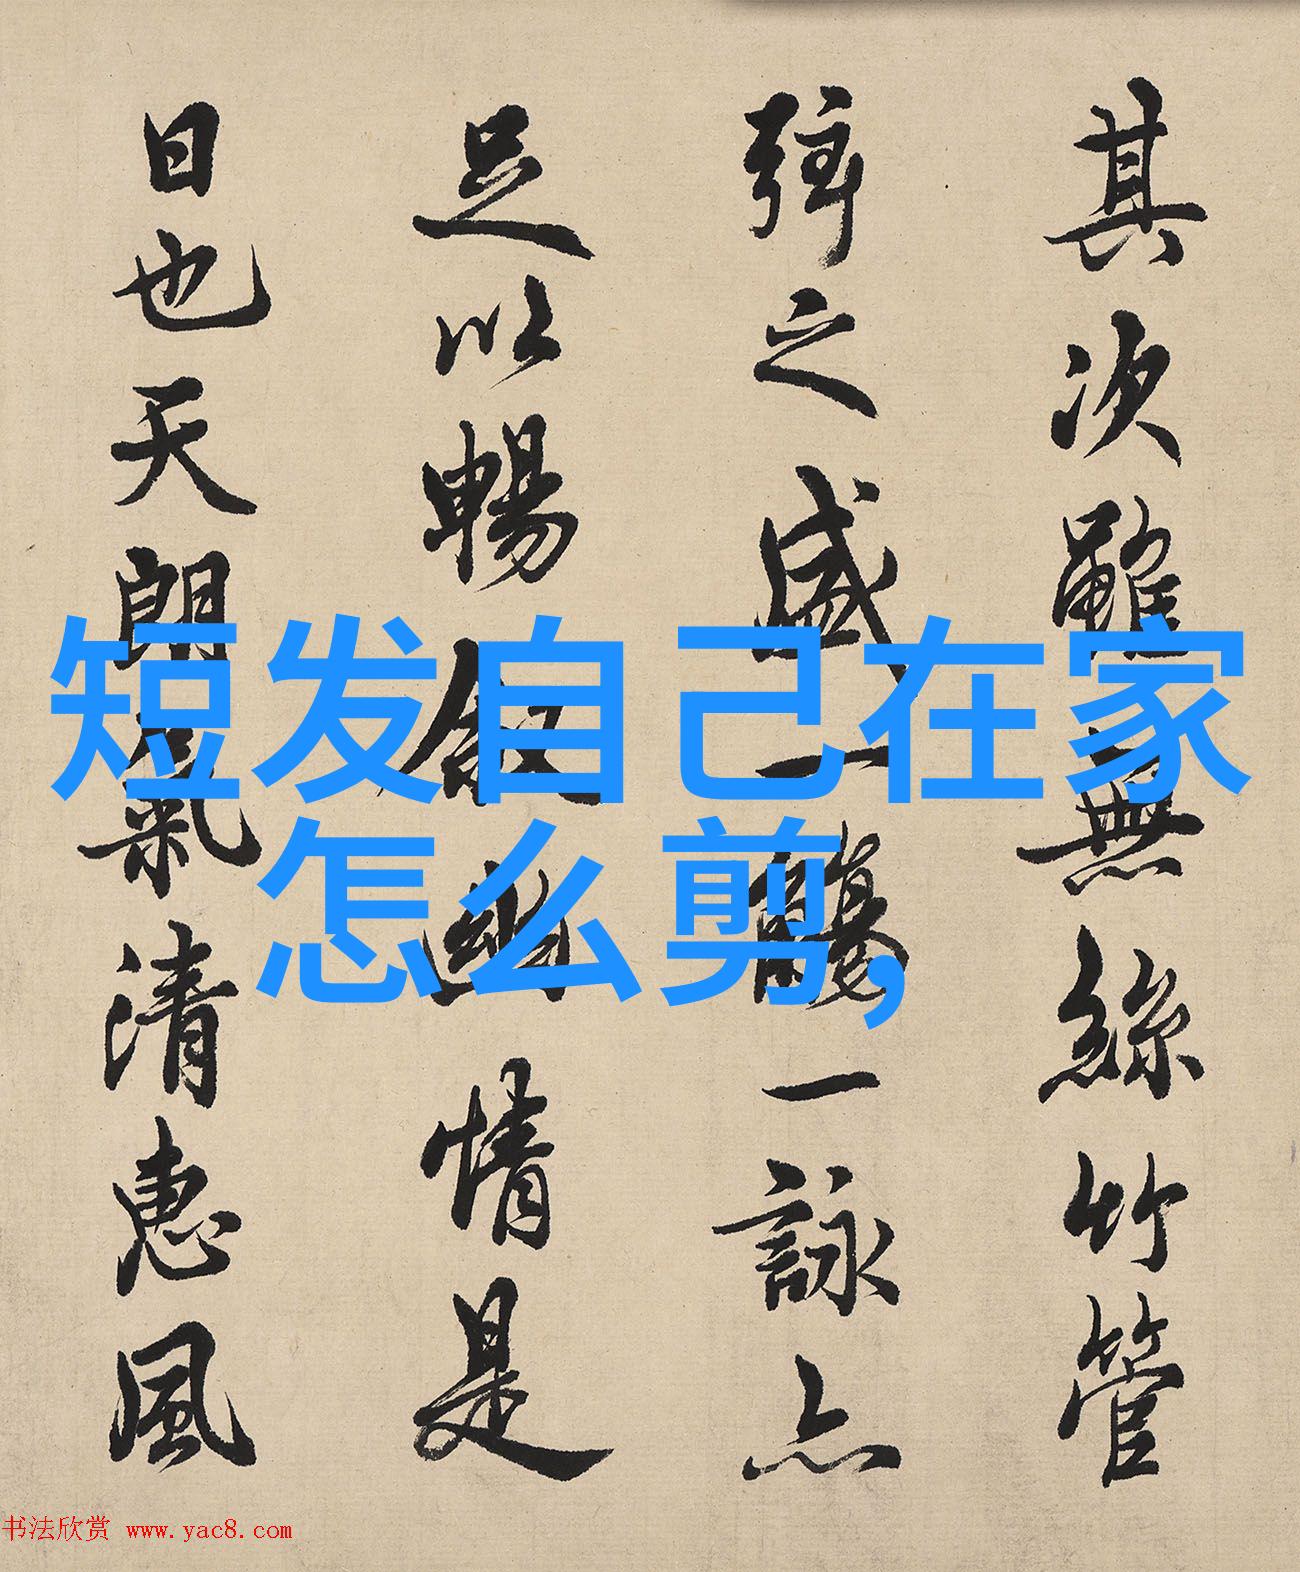 其次雖無絲竹管
弦之盛一觴一詠亦
足以暢敘幽情是
日也天朗氣清惠風
短发自己在家
怎么剪,
书法欣赏 www.yac8.com